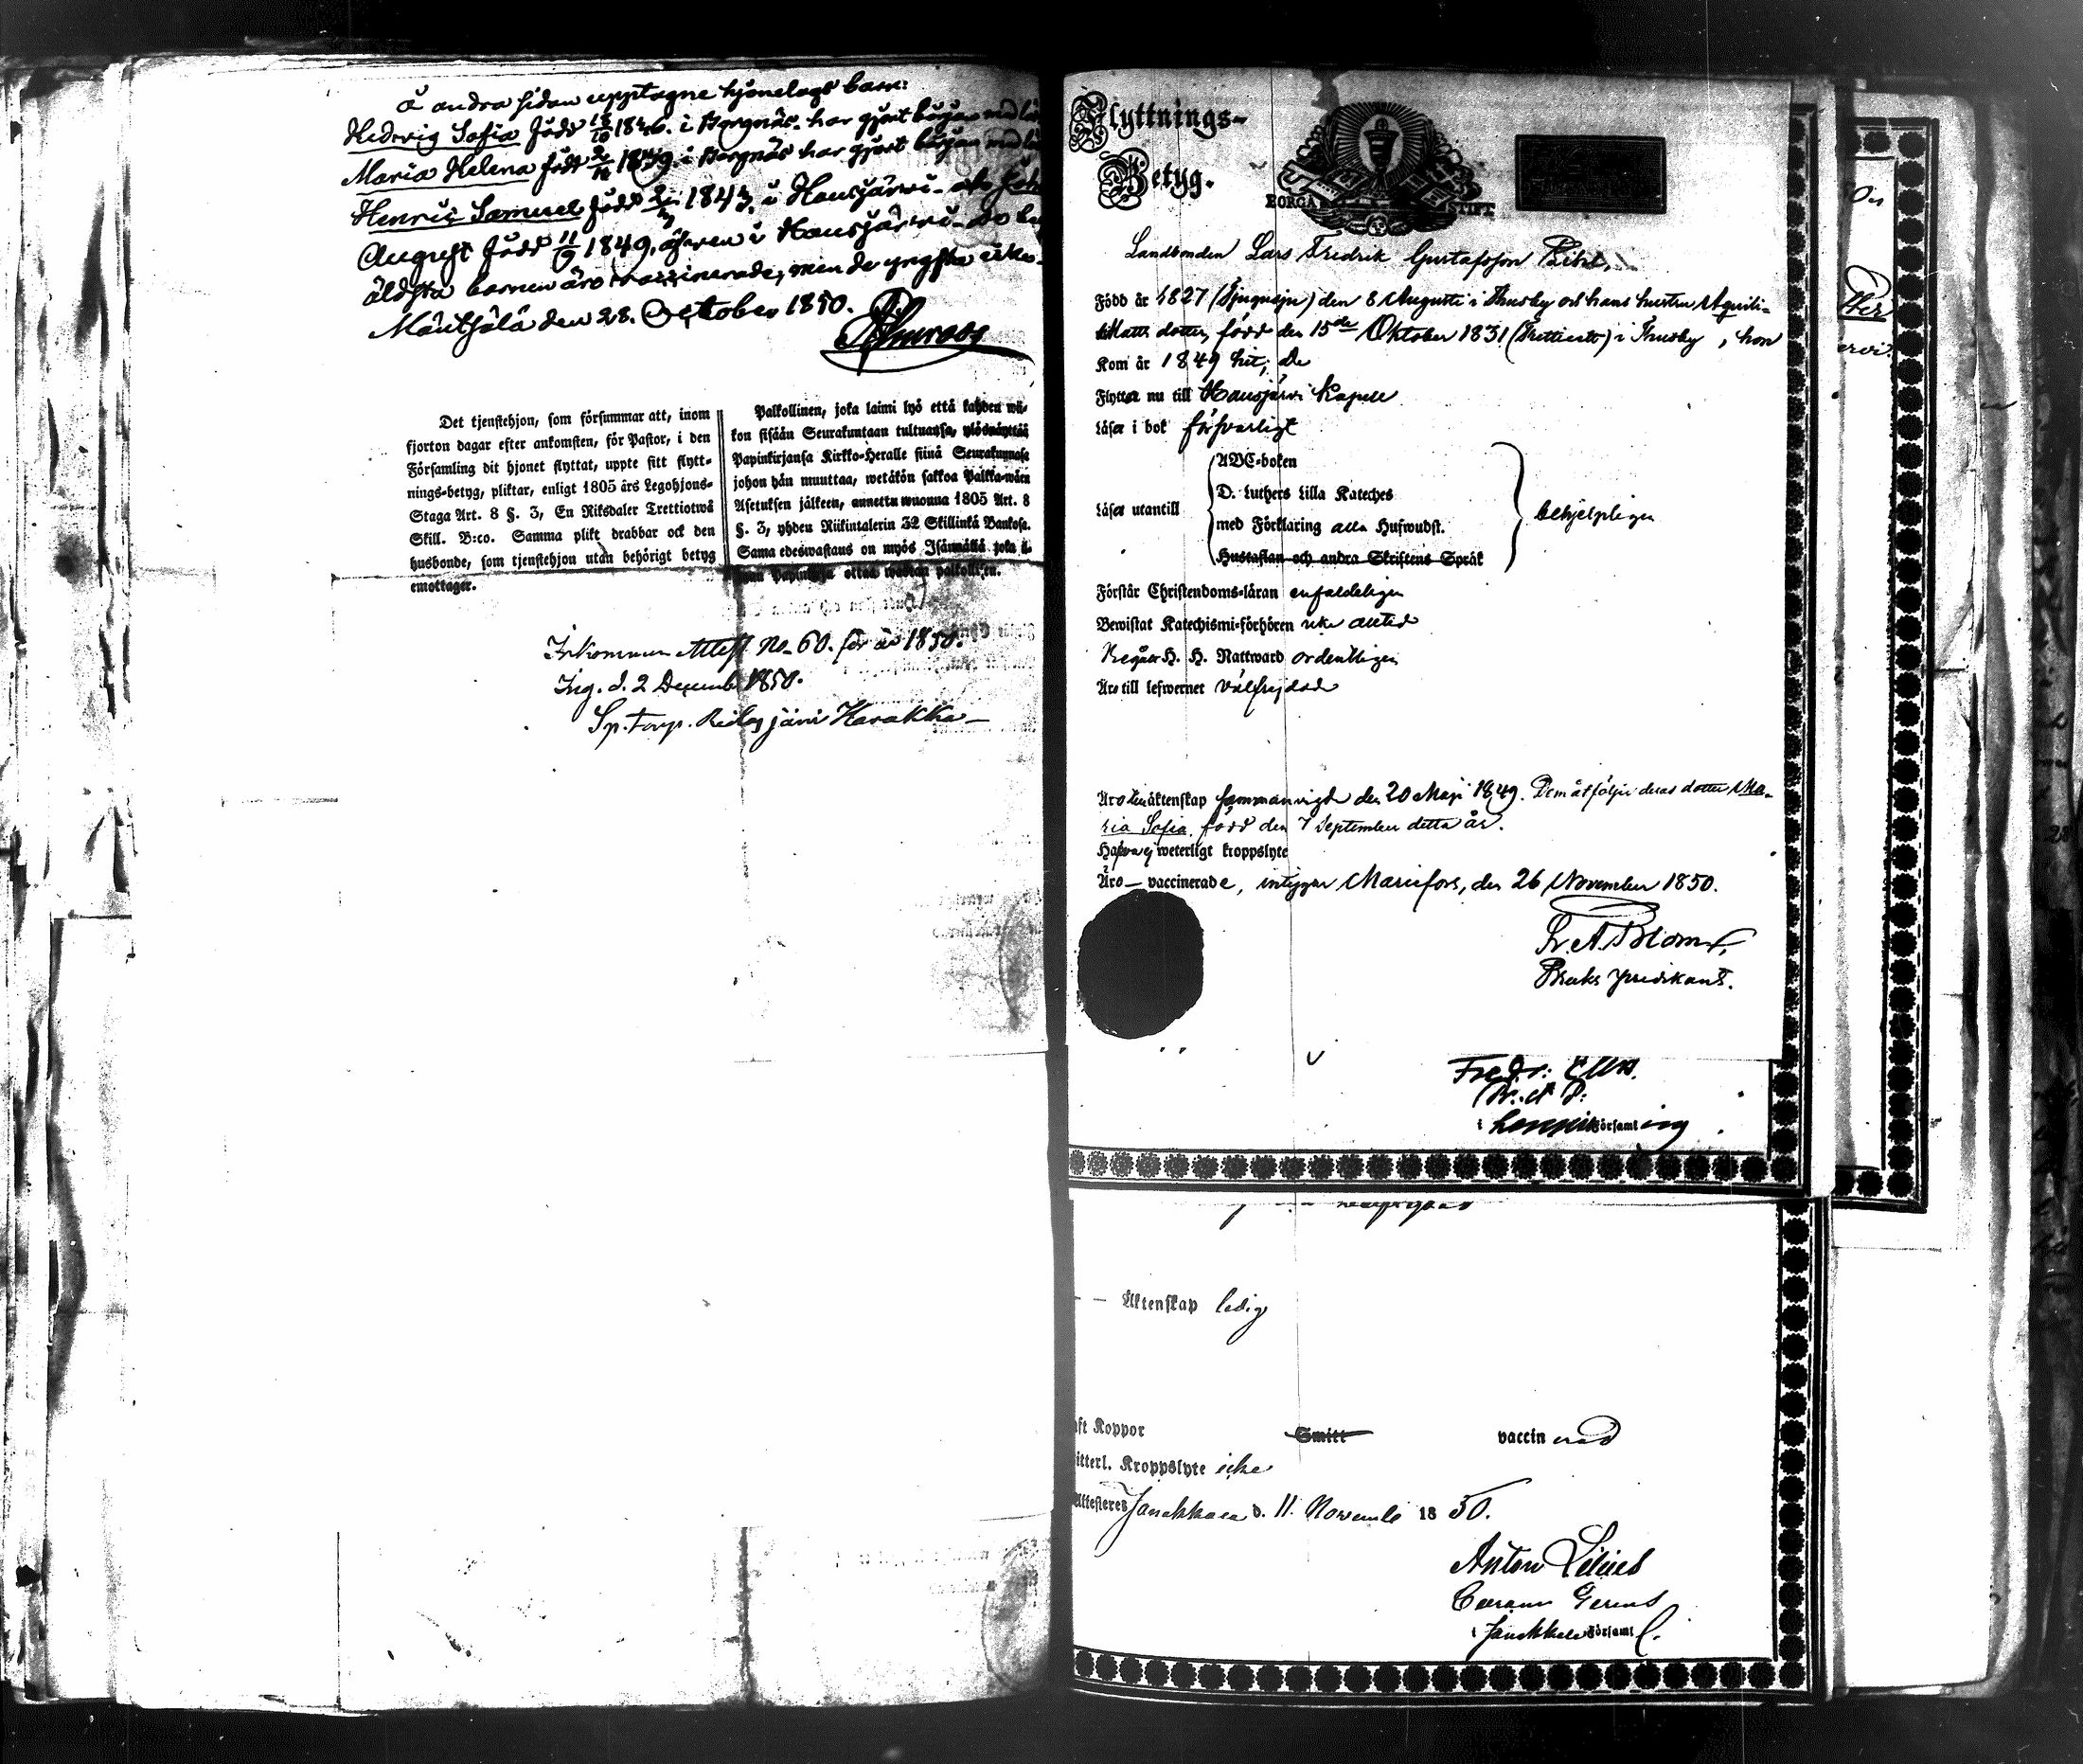 å andra sidan upptagne hjonelags barn:
Hedvig Sofia född 1846. i Borgnäs. har gjort början med
Maria Helena född i Borgnäs har gjort början med
Henric Samuel född 1843, i Hausjärvi
August född 11/9 1849, äfven i Hausjärvi
äldsta barnen äro vaccinerade, men de yngsta icke.
Mäntsälä den 28. October 1850.
Det tjenstehjon, som försummar att, inom
fjorton dagar efter ankomsten, för Pastor, i den
Församling dit hjonet flyttat, uppte sitt flytt-
nings-betyg, pliktar, enligt 1805 års Legohjons-
Staga Art. 8 §. 3, En Riksdaler Trettiotwå
Skill. B:co. Samma plikt drabbar ock den
husbonde, som tjenstehjon utan behörigt betyg
emottager.
Palkollinen, joka laimi lyö että kahden wii-
kon sisään Seurakuntaan tultuansa, ylösnäyttää
Papinkirjansa Kirkko-Herralle siinä Seurakunnasa
johon hän muuttaa, wetäkön sakkoa Palkka-wäen
Asetuksen jälkeen, annettu wuonna 1805 Art. 8
§. 3, yhden Riikintalerin 32 Skillinkä Bankosa.
Sama edeswastaus on myös Isännällä joka
ilman Papinkirja ottaa wastan palkollisen.
Inkommen Attest No 60. för år 1850.
Ing. d. 2 Decemb 1850.
Sp. Torp. Harakka
Flyttnings-
Betyg.
BORGÅ STIFT
Landbonden Lars Fredrik Gustafsson
Född år 1827 (Sjugusju) den 8 Augusti i Thusby och hans hustru
Matts dotter, född den 15de Oktober 1831 (Trettiett) i Thusby, hon
Kom år 1849 hit; De
Flyttar nu till Hausjärvi Kapell
Läser i bok försvarligt
Läser utantill
ABC-boken
D. Luthers Lilla Kateches
med Förklaring alla Hufwudst.
Hustaflan och andra Skriftens Språk
behjelpligen
Förstår Christendoms-läran enfaldeligen
Bewistat Katechismi-förhören icke alltid
Begår H. H. Nattward ordentligen
Äro till lefwernet välfrejdade
Äro i äktenskap sammanvigde den 20 Maji 1849. Dem åtföljer deras dotter Ma-
ria Sofia, född den 7 September detta år.
Hafva ej weterligt kroppslyte
Äro vaccinerade, intygar Mariefors, den 26 November 1850.
Fr. A. Blom,
Bruks predikant.
i Loppis Församling
Äktenskap ledig
Koppor Smitt vaccinerad
Kroppslyte icke
Attesteres Janakkala d. 11. Novemb 1850.
Anton
i Janakkala Församl.